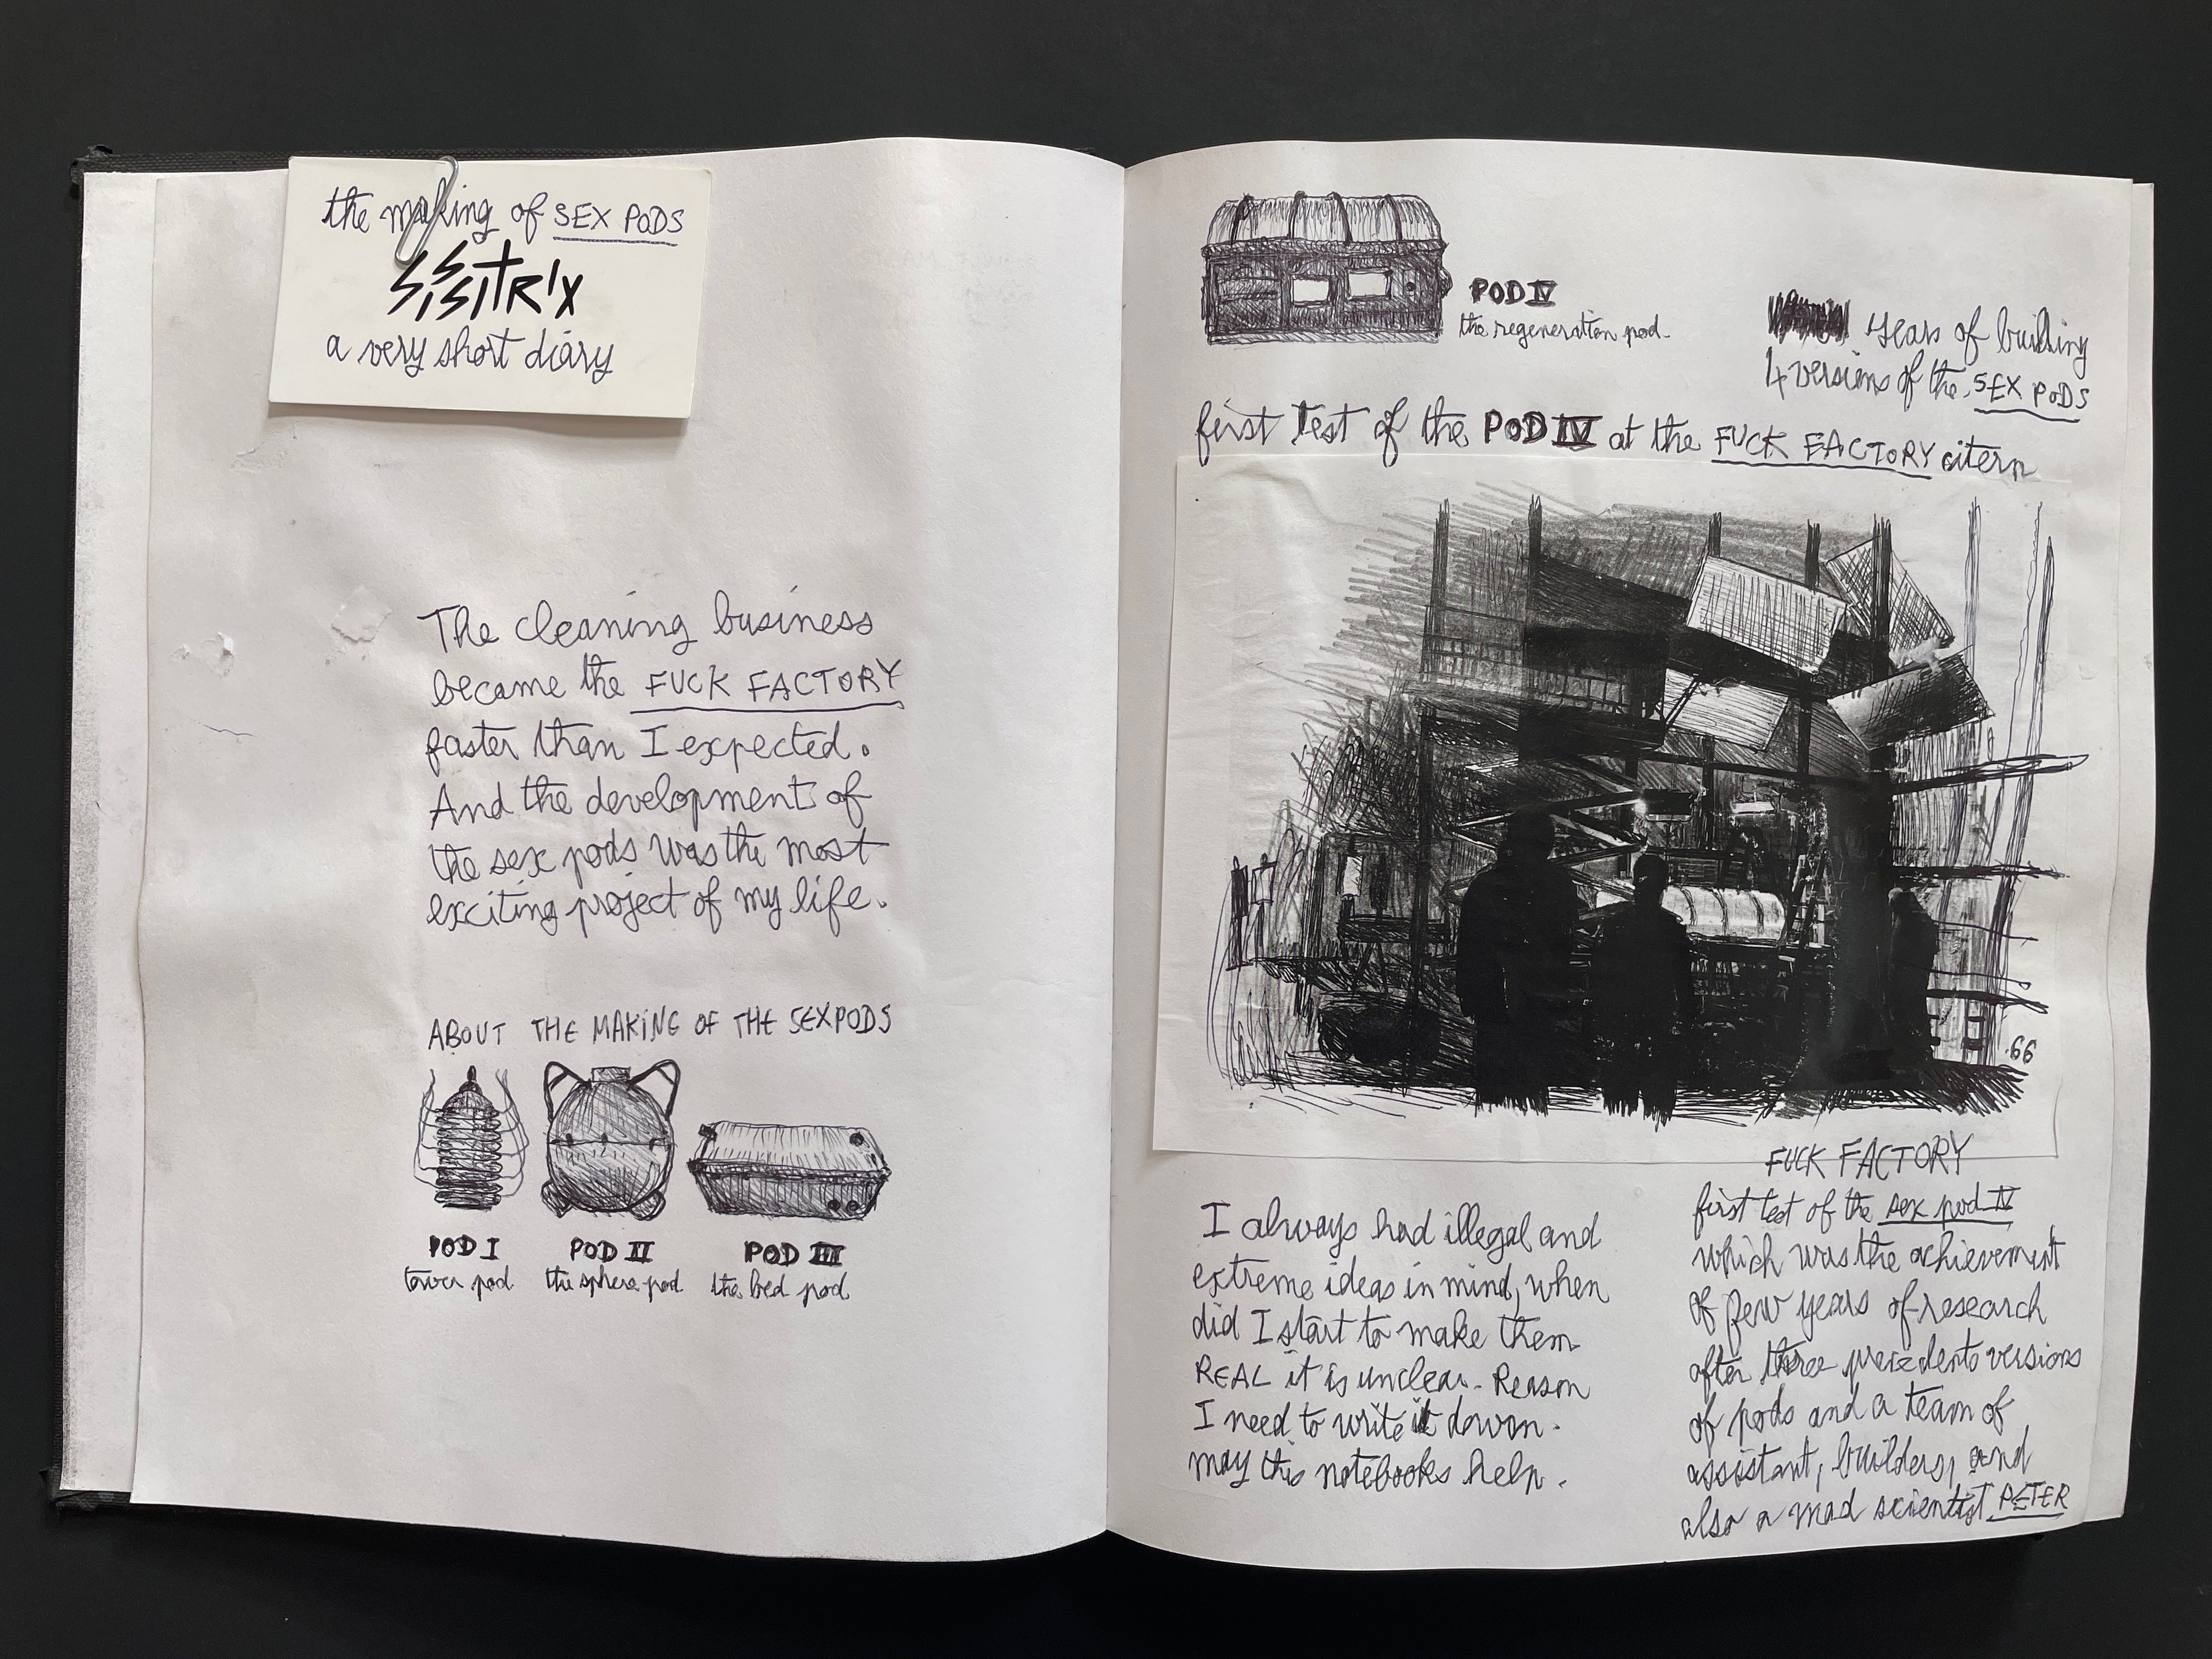 the making of SEX PODS
SISSITRIX
a very short diary
The cleaning business
became the FUCK FACTORY
faster than I expected.
And the development of
the sex pods was the most
exciting project of my life.
ABOUT THE MAKING OF THE SEXPODS
POD I
tower pod
POD II
the sphere pod
POD III
the bed pod
POD IV
the regeneration pod.
years of building
4 versions of the SEX PODS
first test of the POD IV at the FUCK FACTORY citern
.66
I always had illegal and
extreme ideas in mind, when
did I start to make them
REAL it is unclear. Reason
I need to write it down.
may this notebooks help.
FUCK FACTORY
first test of the sex pod IV
which was the achievement
of few years of research
after three precedents versions
of pods and a team of
assistant, builders, and
also a mad scientist PETER